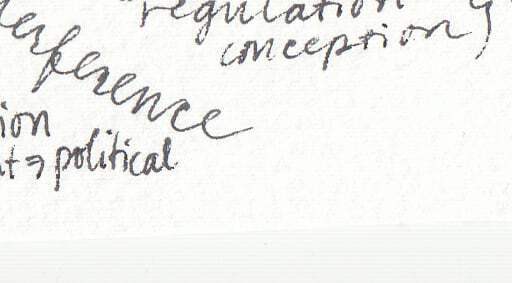 "regulation
conception)
erference
ion
t → political